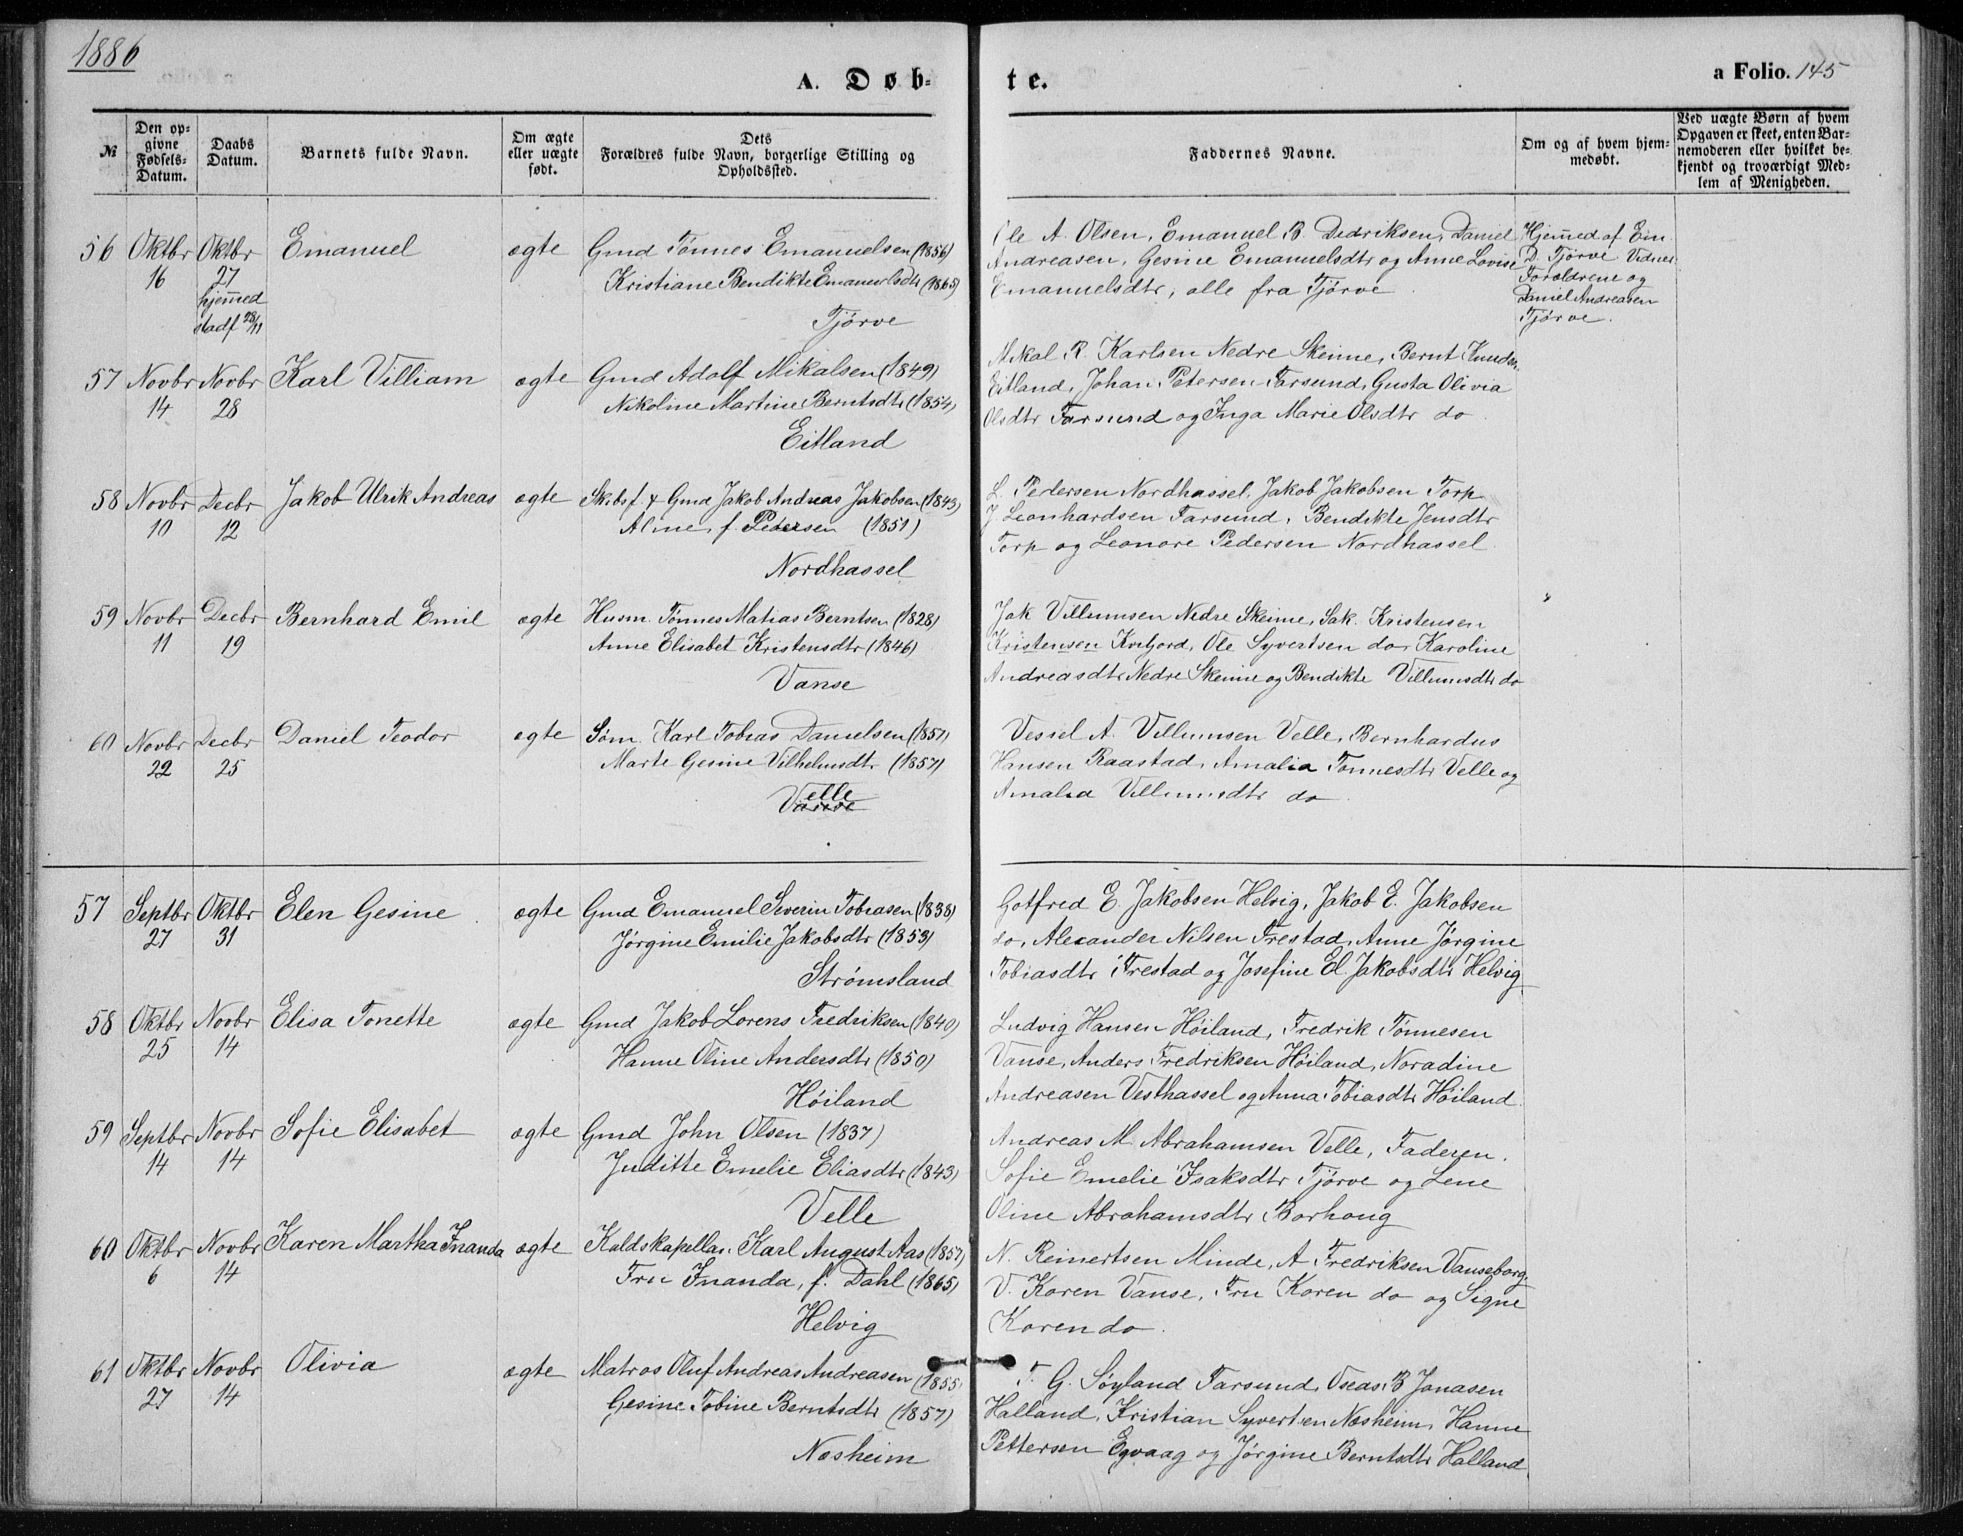 1886
A. Døb-
te.
a Folio. 145
№
Den op-
givne
Fødsels-
Datum.
Daabs
Datum.
Barnets fulde Navn.
Om ægte
eller uægte
født.
Dets
Forældres fulde Navn, borgerlige Stilling og
Opholdssted.
Faddernes Navne.
Om og af hvem hjem-
medøbt.
Ved uægte Børn af hvem
Opgaven er skeet, enten Bar-
nemoderen eller hvilket be-
kjendt og troværdigt Med-
lem af Menigheden.
56 Oktbr Oktbr Emanuel ægte Gmd Tønnes Emanuelsen (1856)
16 27 Kristiane Bendikte Emanuelsdtr (1865)
hjemmed
stadf 28/11 Tjørve
Ole A. Olsen, Emanuel B. Dedriksen, Daniel
Andreasen, Gesine Emanuelsdtr og Anne Lovise
Emanuelsdtr, alle fra Tjørve
Hjemmed af Em.
D. Tjørve Vidner
Forældrene og
Daniel Andreasen
Tjørve.
57 Novbr Novbr Karl Villiam ægte Gmd Adolf Mikalsen (1849)
14 28 Nikoline Martine Berntsdtr (1854)
Eitland
Mikal R. Karlsen Nedre Skeime, Bernt Knudsen
Eitland, Johan Petersen Farsund, Gusta Olivia
Olsdtr Farsund og Inga Marie Olsdtr do
58 Novbr Decbr Jakob Ulrik Andreas ægte Skibsf. & Gmd Jakob Andreas Jakobsen (1843)
10 12 Aline, f. Pedersen (1851)
Nordhassel
L. Pedersen Nordhassel, Jakob Jakobsen Torp
J Leonhardsen Farsund, Bendikte Jensdtr
Torp og Leonore Pedersen Nordhassel
59 Novbr Decbr Bernhard Emil ægte Husm. Tønnes Matias Berntsen (1828)
11 19 Anne Elisabet Kristensdtr (1846)
Vanse
Jak Villumsen Nedre Skeime, Sak. Kristensen
Kristensen Kvijord, Ole Syvertsen do, Karoline
Andreasdtr Nedre Skeime og Bendikte Villumsdtr do
60 Novbr Decbr Daniel Teodor ægte Søm. Karl Tobias Danielsen (1857)
22 25 Marte Gesine Vilhelmsdtr (1857)
Velle
Vanse
Vessel A. Villumsen Velle, Bernhardus
Hansen Raastad, Amalia Tønnesdtr Velle og
Amalia Villumsdtr do
57 Septbr Oktbr Elen Gesine ægte Gmd Emanuel Severin Tobiasen (1838)
27 31 Jørgine Emilie Jakobsdtr (1853)
Strømsland
Gotfred E. Jakobsen Helvig, Jakob E. Jakobsen
do, Alexander Nilsen Frestad, Anne Jørgine
Tobiasdtr Frestad og Josefine El. Jakobsdtr Helvig
58 Oktbr Novbr Elisa Tonette ægte Gmd Jakob Lorens Fredriksen (1840)
25 14 Hanne Oline Andersdtr (1850)
Høiland
Ludvig Hansen Høiland, Fredrik Tønnesen
Vanse, Anders Fredriksen Høiland, Noradine
Andreasen Vesthassel og Anna Tobiasdtr Høiland
59 Septbr Novbr Sofie Elisabet ægte Gmd John Olsen (1837)
14 14 Juditte Emelie Eliasdtr (1843)
Velle
Andreas M. Abrahamsen Velle, Faderen,
Sofie Emelie Isaksdtr Tjørve og Lene
Oline Abrahamsdtr Borhoug
60 Oktbr Novbr Karen Martha Inanda ægte Kaldskapellan Karl August Aas (1857)
6 14 Fru Inanda, f. Dahl (1865)
Helvig
N. Reinertsen Minde, A Fredriksen Vanseborg
V. Koren Vanse, Fru Koren do og Signe
Koren do.
61 Oktbr Novbr Olivia ægte Matros Oluf Andreas Andreasen (1855)
27 14 Gesine Tobine Berntsdtr (1857)
Næsheim
T. G. Søyland Farsund, Oseas B Jonasen
Halland, Kristian Syvertsen Næsheim, Hanne
Pettersen Egvaag og Jørgine Berntsdtr Halland